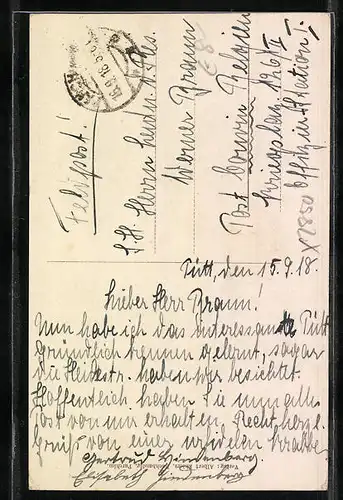 Feldpost!
S. H. Herrn Leutn. d. Res.
Werner Braun
Post Couvin Belgien
Kriegslaz. 126/II
Offizier Station!
X2850
Pütt, den 15.9.18.
Lieber Herr Braun!
Nun habe ich das interessante Pütt
gründlich kennen gelernt, sogar
die Heidestr. haben wir besichtet.
Hoffentlich haben Sie nun alle
Post von uns erhalten. Recht herzl.
Gruß von einer
Gertrud Hindenberg.
Elisabeth Hindenberg